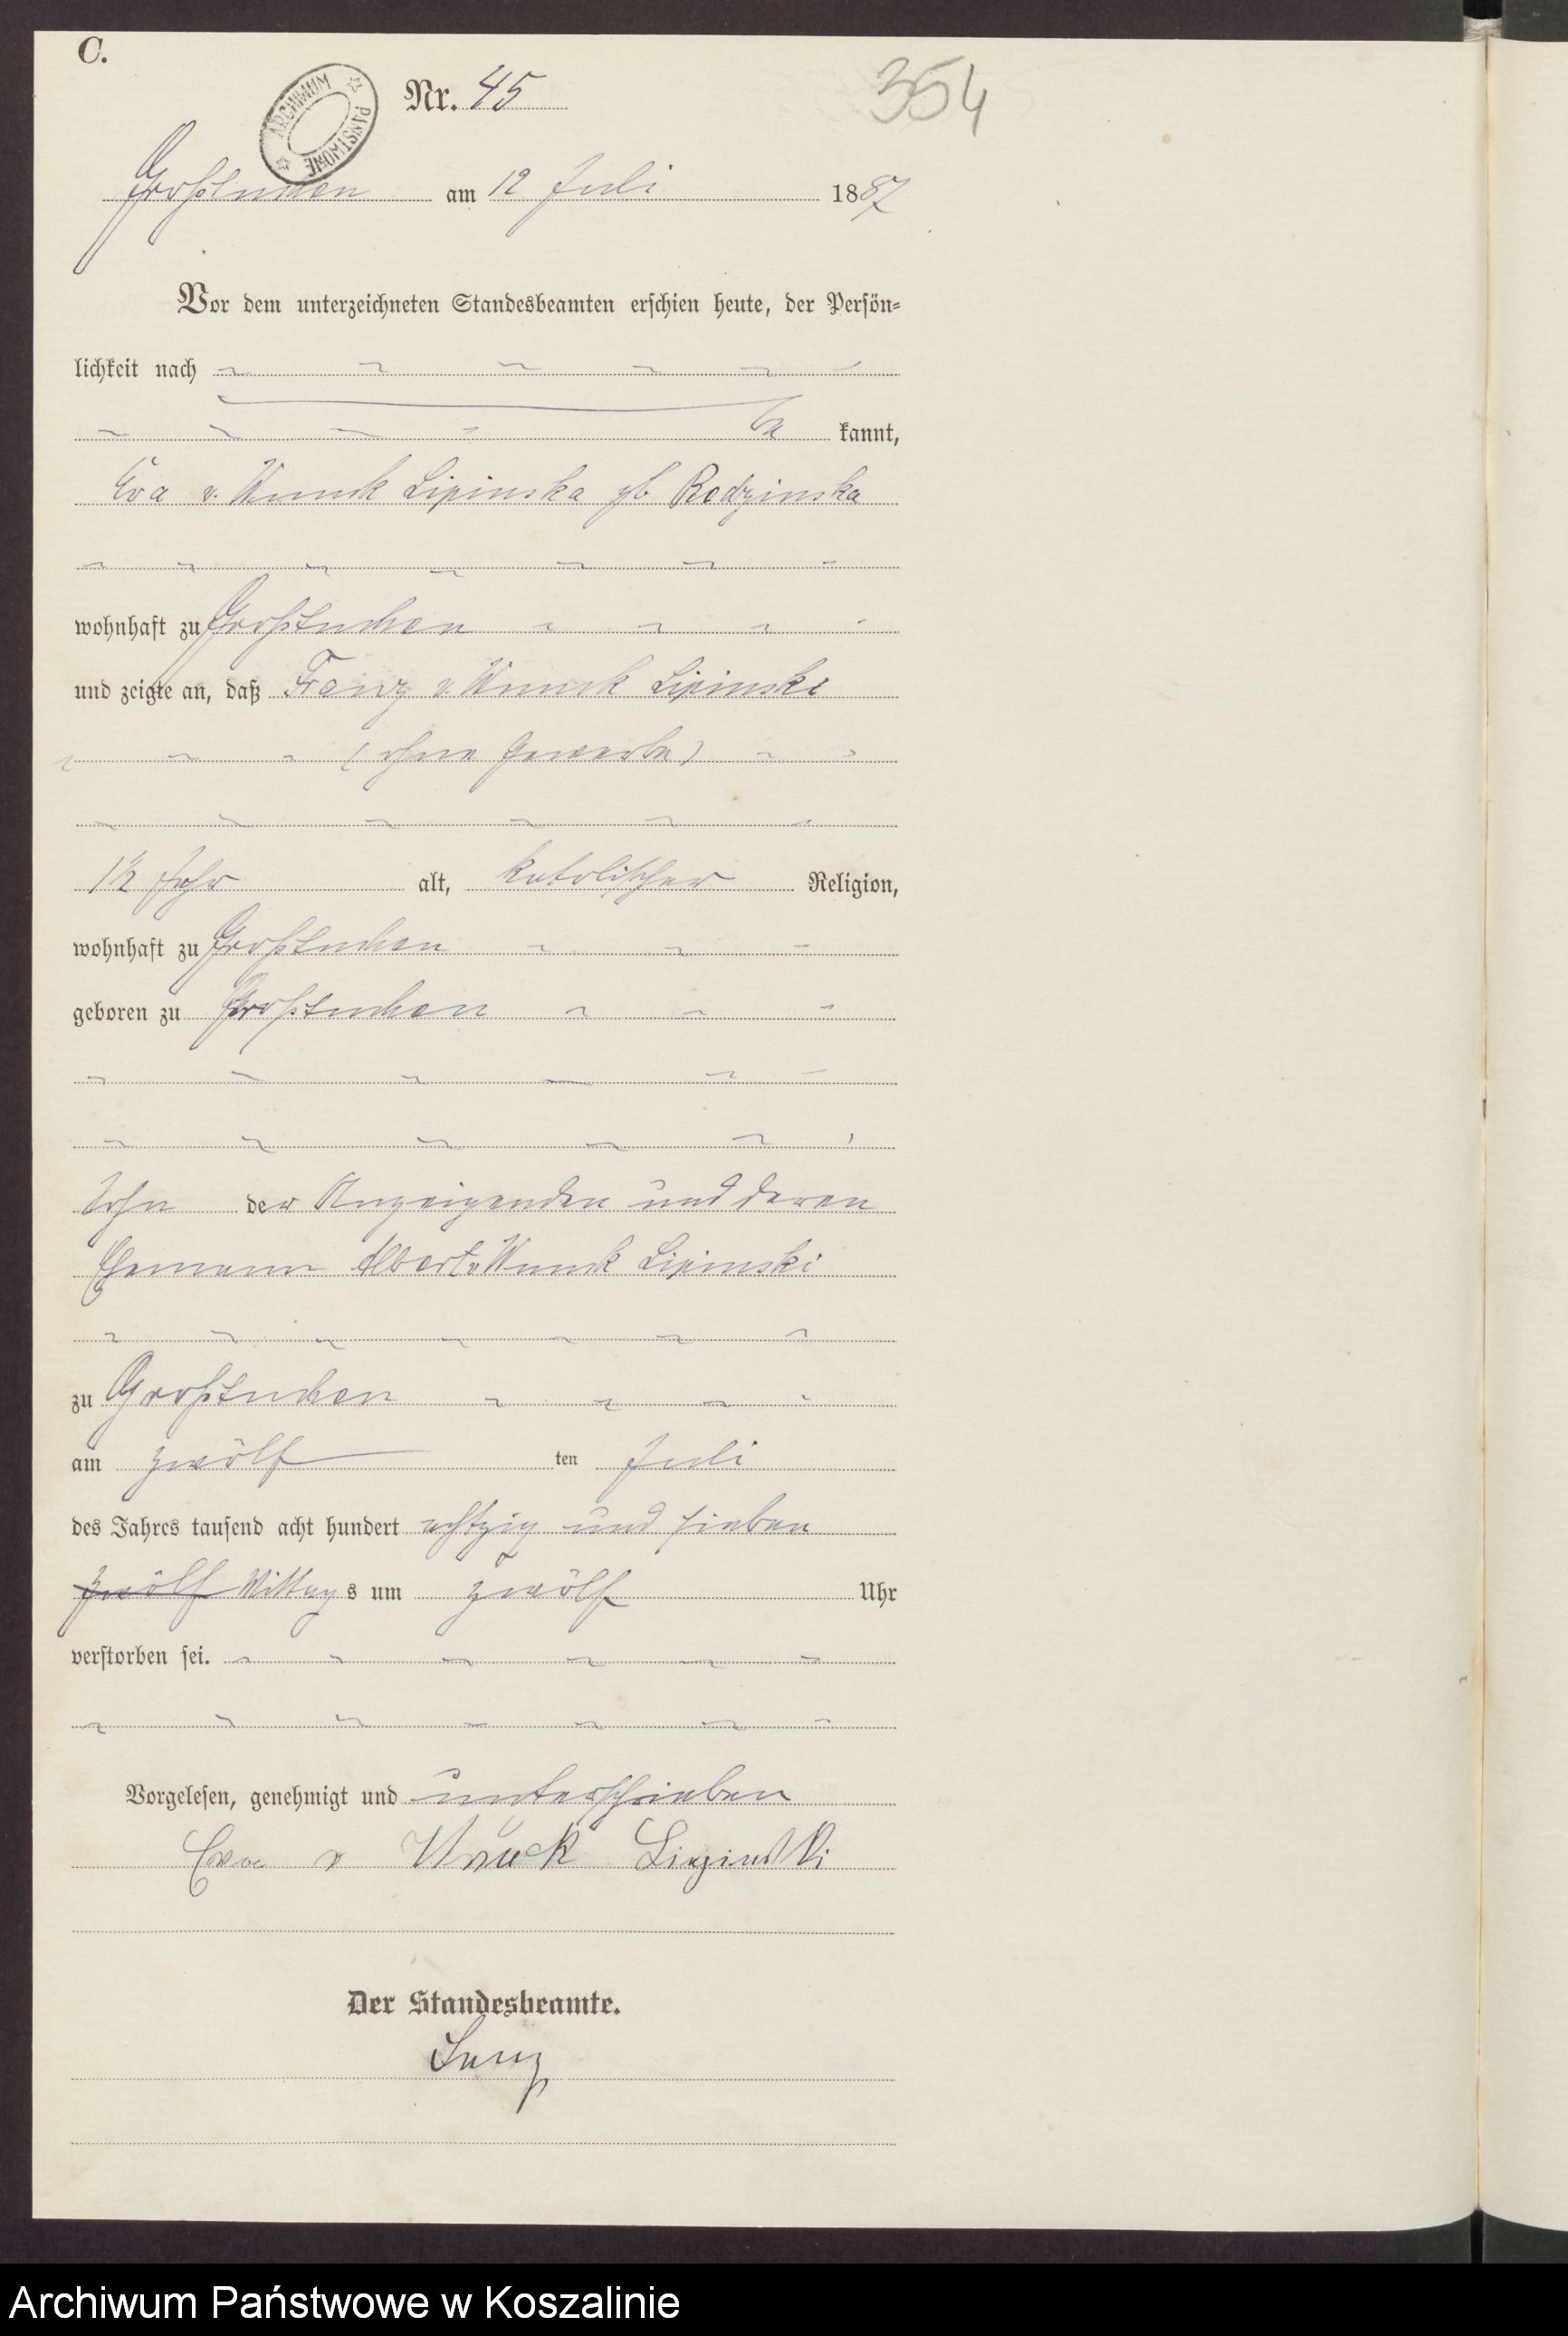 C.
ARCHIWUM PAŃSTWOWE
Nr. 45
354
Großtuchen am 12 Juli 1887
Vor dem unterzeichneten Standesbeamten erschien heute, der Persön=
lichkeit nach
be kannt,
Eva v. Wnuck Lipinska gb Rodzinska
wohnhaft zu Großtuchen
und zeigte an, daß Franz v Wnuck Lipinski
(ohne Gewerbe)
1½ Jahr alt, katolischer Religion,
wohnhaft zu Großtuchen
geboren zu Großtuchen
Sohn der Anzeigenden und deren
Ehemann Albert v Wnuck Lipinski
zu Großtuchen
am zwölf ten Juli
des Jahres tausend acht hundert achtzig und sieben
zwölf Mittags um zwölf Uhr
verstorben sei.
Vorgelesen, genehmigt und unterschrieben
Eva v Wnuck Lipinski
Der Standesbeamte.
Archiwum Państwowe w Koszalinie